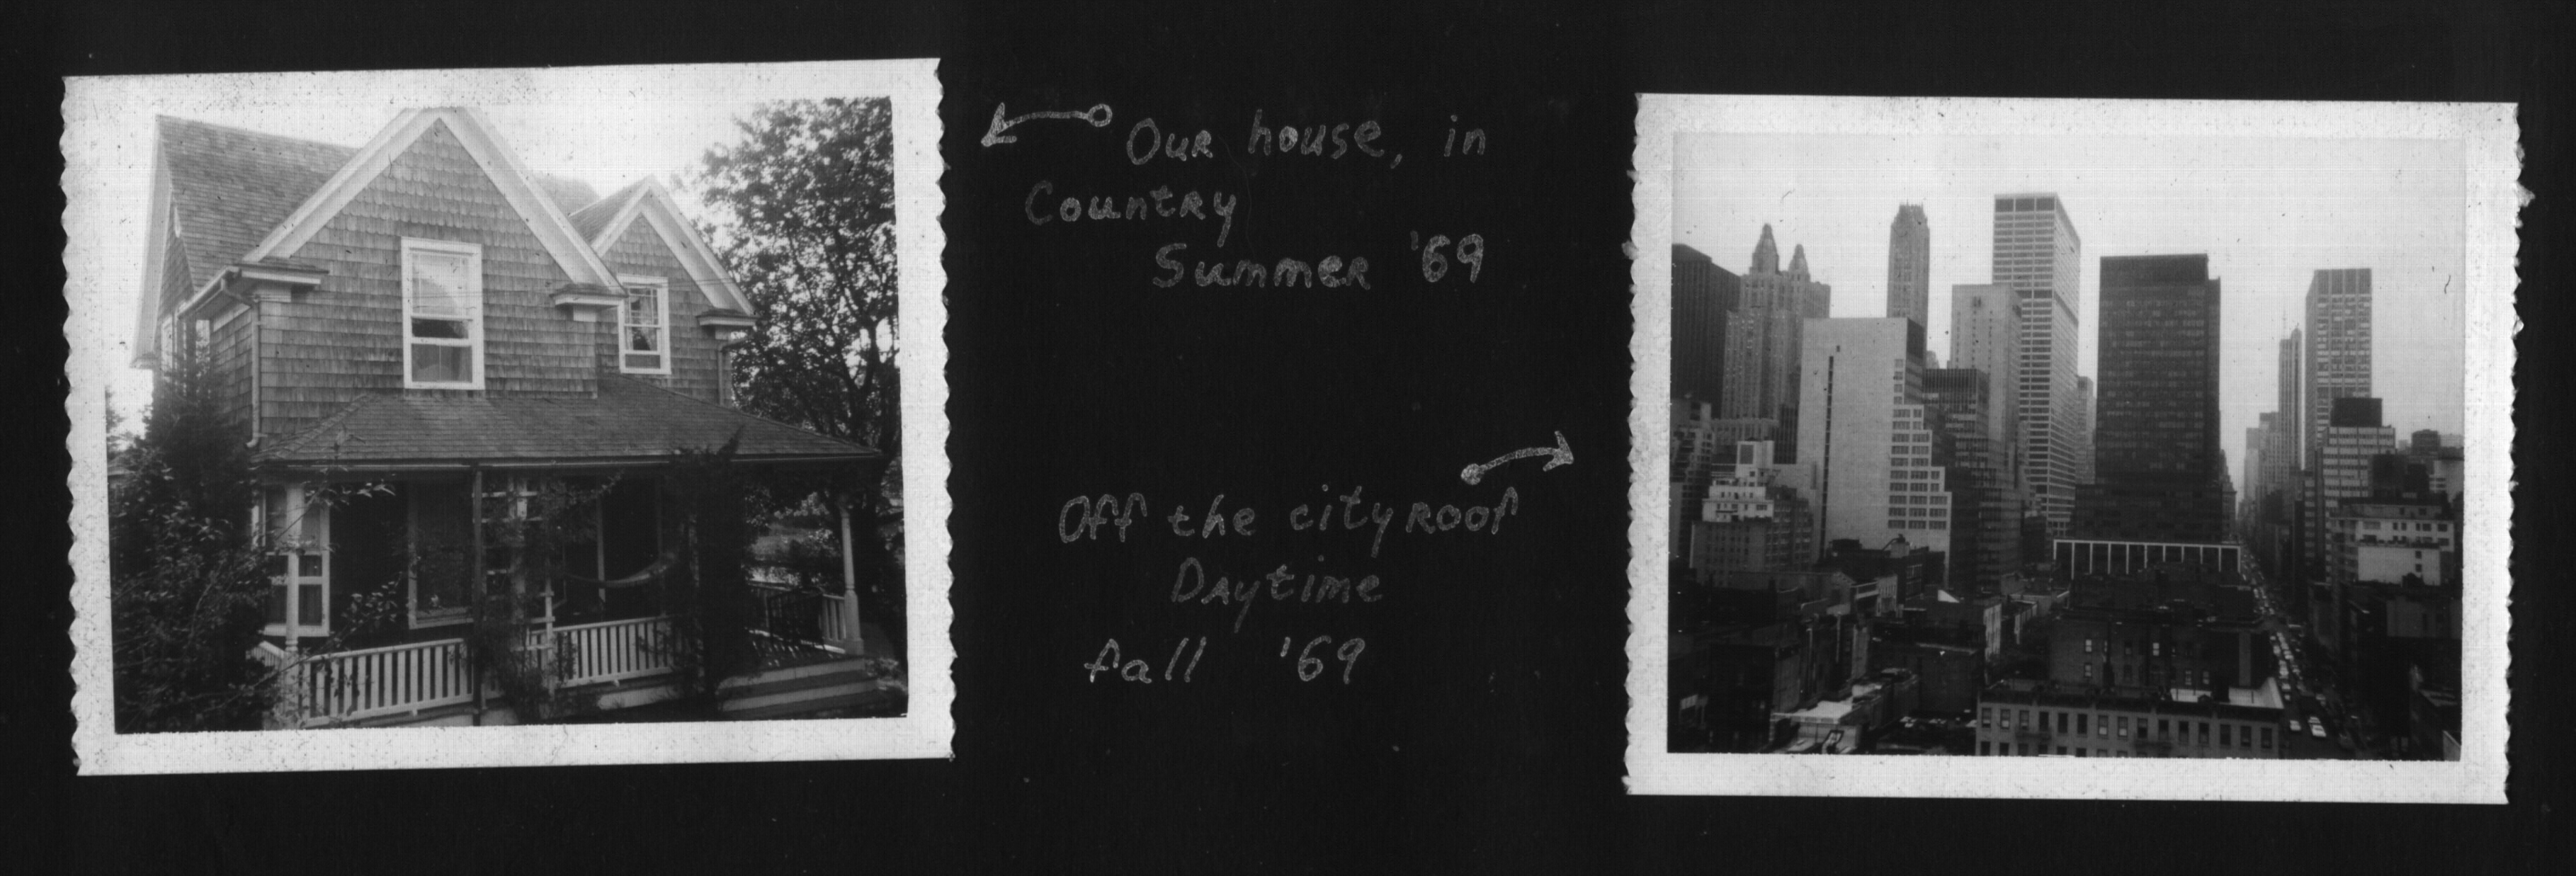 Our house, in
Country
Summer '69
Off the city roof
Daytime
fall '69